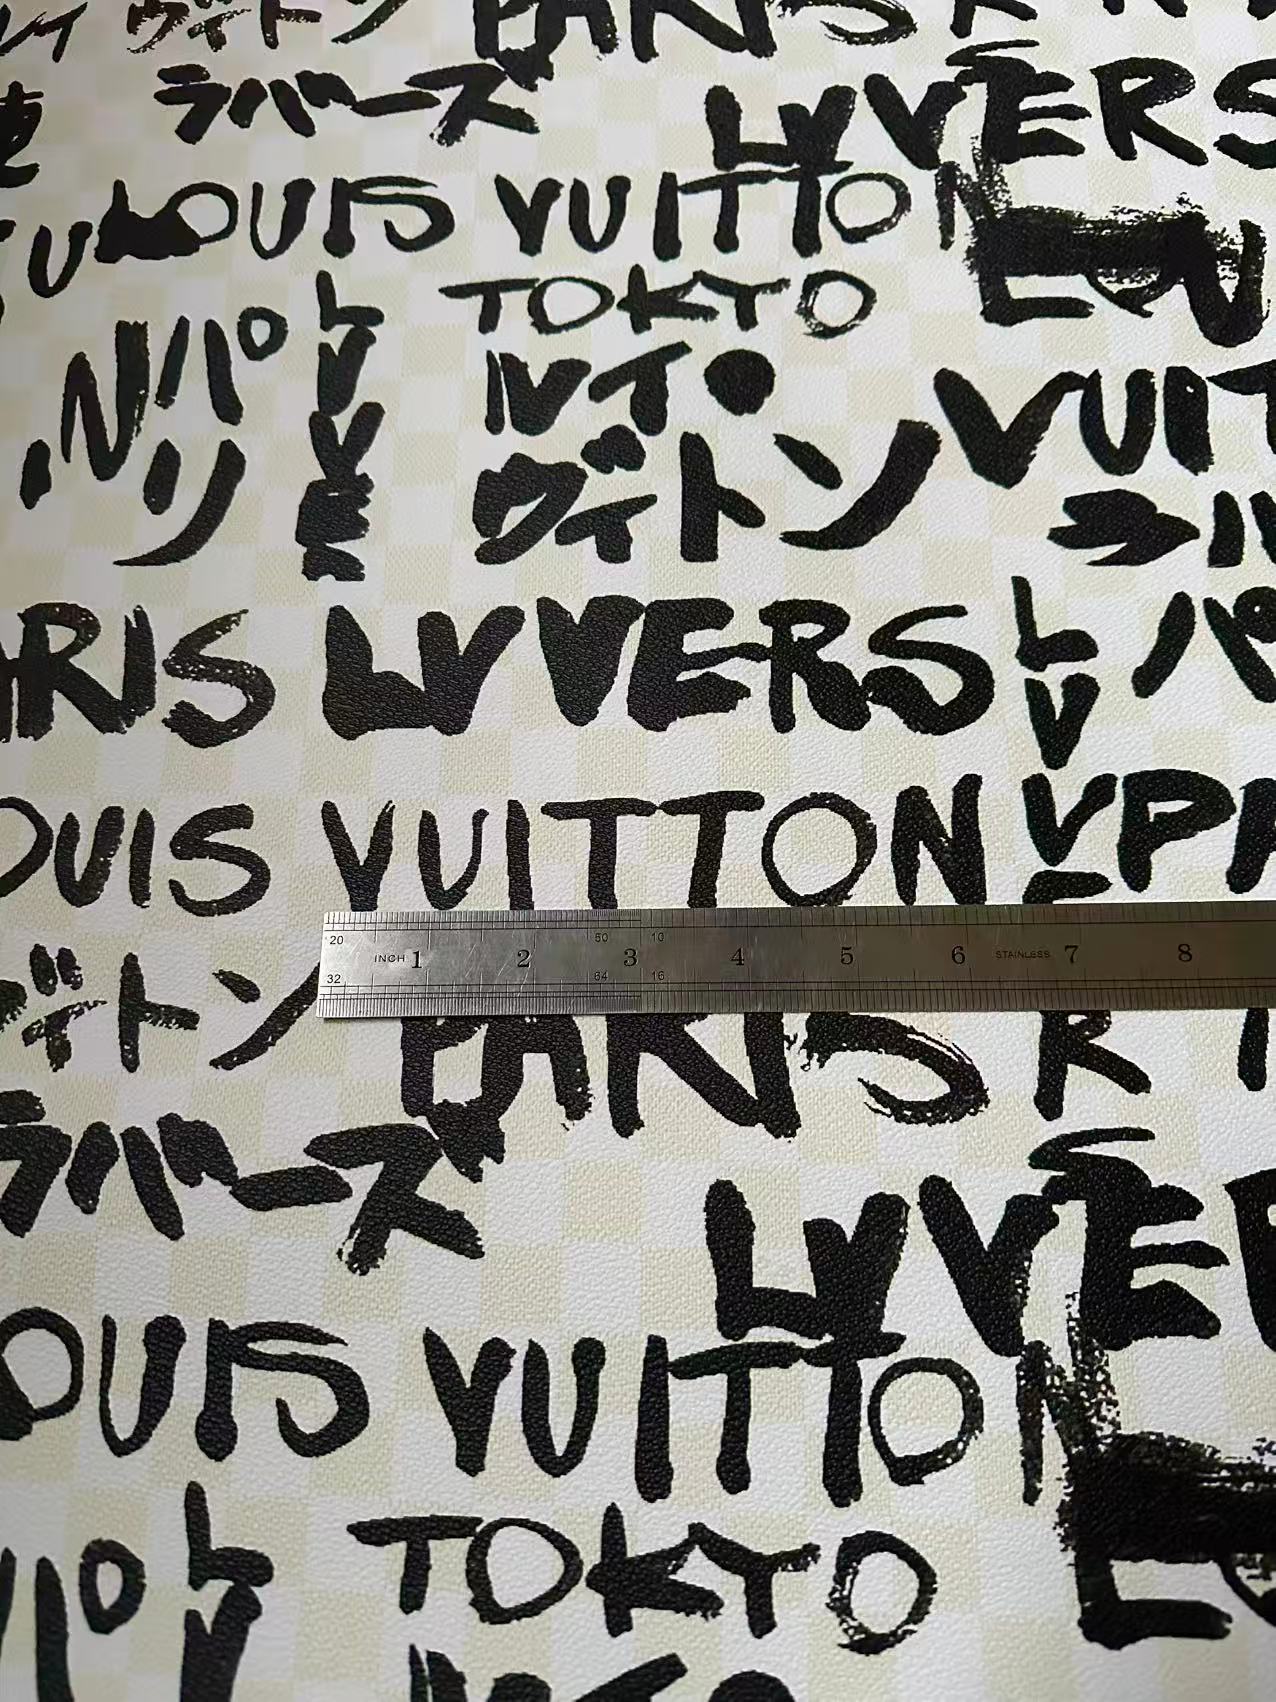 ヴィトン PARIS
ラバーズ LVVERS
LOUIS VUITTON
TOKYO
パリ
ルイ・
ヴィトン VUIT
PARIS LVVERS パ
LOUIS VUITTON
20 50 10
INCH 1 2 3 4 5 6 STAINLESS 7 8
32 64 16
ヴィトン PARIS
ラバーズ
LVVE
LOUIS VUITTON
TOKYO